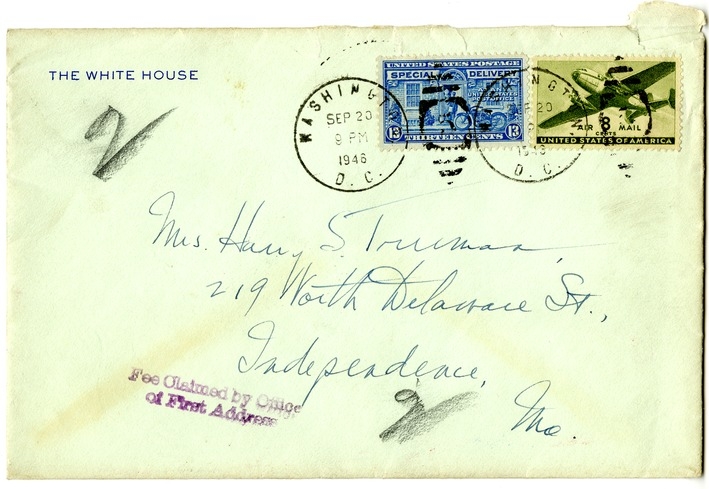 THE WHITE HOUSE
WASHINGTON
SEP 20
9 PM
1946
D. C.
UNITED STATES POSTAGE
SPECIAL DELIVERY
UNITED STATES
POST OFFICE
13 13
THIRTEEN CENTS
1946
D. C.
AIR 8 MAIL
CENTS
UNITED STATES OF AMERICA
2
Mrs. Harry S. Truman,
219 North Delaware St.,
Independence,
Mo.
Fee Claimed by Office
of First Address
2